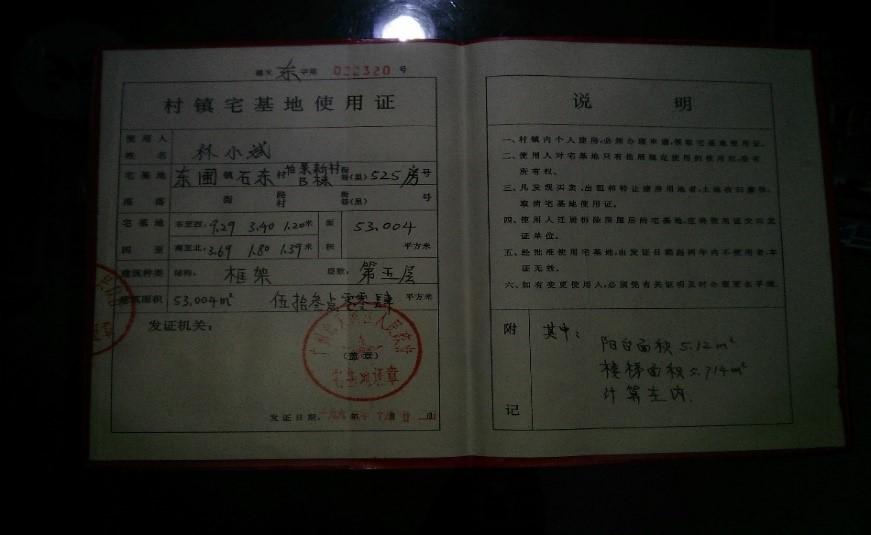 字第 022320 号
村镇宅基地使用证
使用人
姓名 林小斌
宅基地 东圃镇石东村 怡景新村B栋 525房号
座落 街 路村 巷(里) 号
宅基地 东至西: 9.29 3.40 1.20米 面 53.004
四至 南至北: 3.69 1.80 1.39米 积 平方米
建筑种类 结构: 框架 层数: 第五层
建筑面积 53.004m² 伍拾叁点零零肆 平方米
发证机关:
(盖章)
宅基地证章
发证日期:
说明
一、村镇内个人建房,必须办理申请,领取宅基地使用证。
二、使用人对宅基地只有按照规定使用的使用权,没有
所有权。
三、凡发现买卖、出租和转让建房用地者,土地收归集体,
取消宅基地使用证。
四、使用人迁居拆除房屋后的宅基地,应将使用证交回发
证单位。
五、经批准使用宅基地,由发证日期起两年内不使用者,本
证无效。
六、如有变更使用人,必须凭有关证明及时办理更名手续。
附记
其中:
阳台面积 5.12m²
楼梯面积 5.714m²
计算在内.